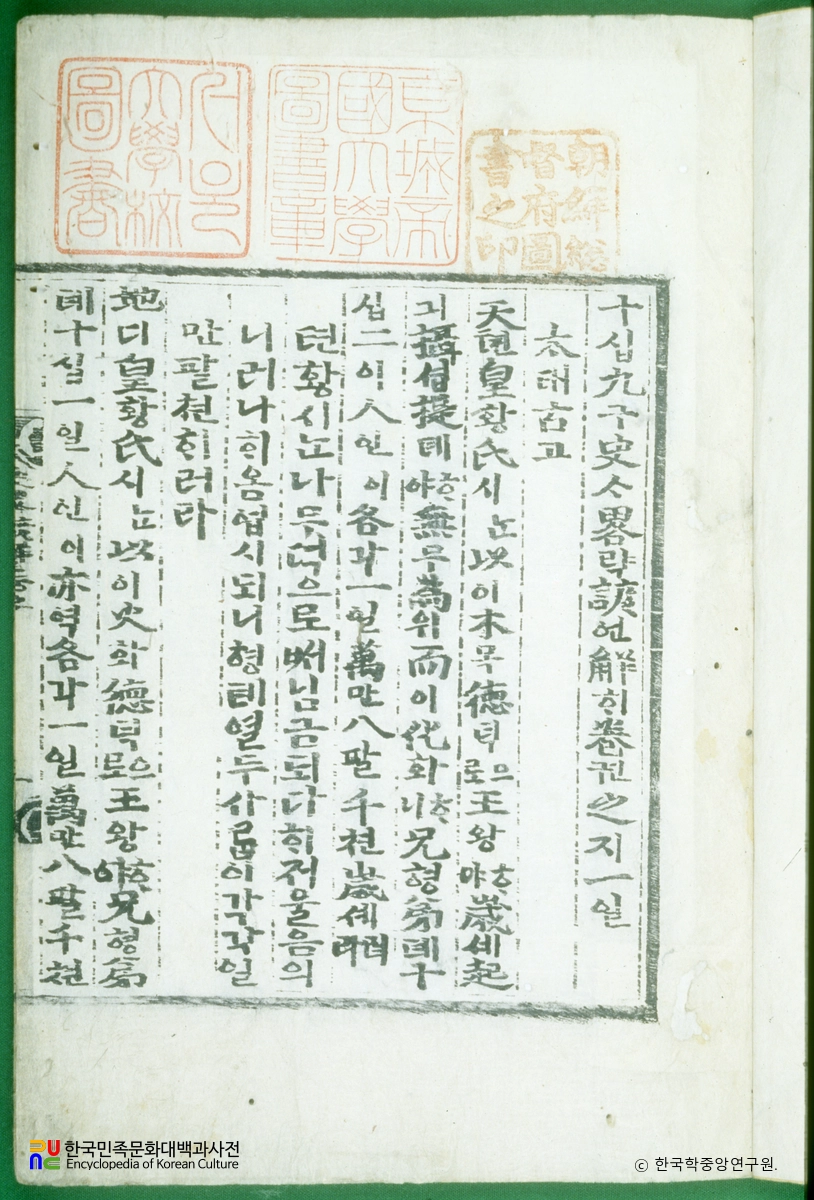 朝鮮總
督府圖
書之印
京城帝
國大學
圖書章
서울
大學校
圖書
十십九구史ᄉᆞ畧략諺언解ᄒᆡ卷권之지一일
太태古고
天텬皇황氏시ᄂᆞᆫ以이木목德덕으로王왕ᄒᆞ야歲셰起
긔攝셥提뎨ᄒᆞ야無무爲위而이化화ᄒᆞ니兄형弟뎨十
십二이人인이各각一일萬만八팔千쳔歲셰러라
텬황시ᄂᆞᆫ나무덕으로ᄡᅥ님금되다ᄒᆡ저울음의
니러나ᄒᆡ옴업시되니형뎨열두사ᄅᆞᆷ이각각일
만팔쳔ᄒᆡ러라
地디皇황氏시ᄂᆞᆫ以이火화德덕으로王왕ᄒᆞ야兄형弟
뎨十십一일人인이亦역各각一일萬만八팔千쳔
한국민족문화대백과사전
Encyclopedia of Korean Culture
© 한국학중앙연구원.